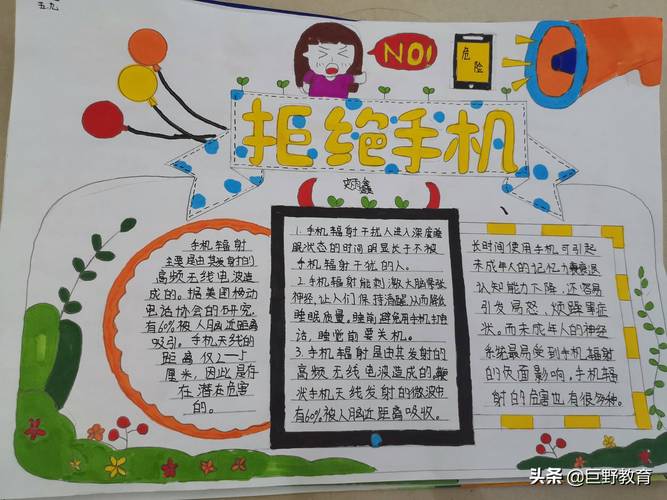 五九
NO!
危险
拒绝手机
手机辐射
主要是由其发射的
高频无线电波造
成的。据美国移动
电话协会的研究,
有60%被人脑近距离
吸引。手机天线的
距离仅2—5
厘米,因此是存
在潜在危害
的。
1.手机辐射干扰人进入深度睡
眠状态的时间明显长于不被
手机辐射干扰的人。
2.手机辐射能刺激大脑紧张
神经,让人们保持清醒,从而降低
睡眠质量。睡前避免用手机打电
话,睡觉前要关机。
3.手机辐射是由其发射的
高频无线电波造成的,
状手机天线发射的微波中
有60%被人脑近距离吸收。
长时间使用手机可引起
未成年人的记忆力衰退
认知能力下降,还容易
引发局怒、烦躁等症
状。而未成年人的神经
系统最易受到手机辐射
的负面影响,手机辐
射的危害也有很多种。
头条@巨野教育